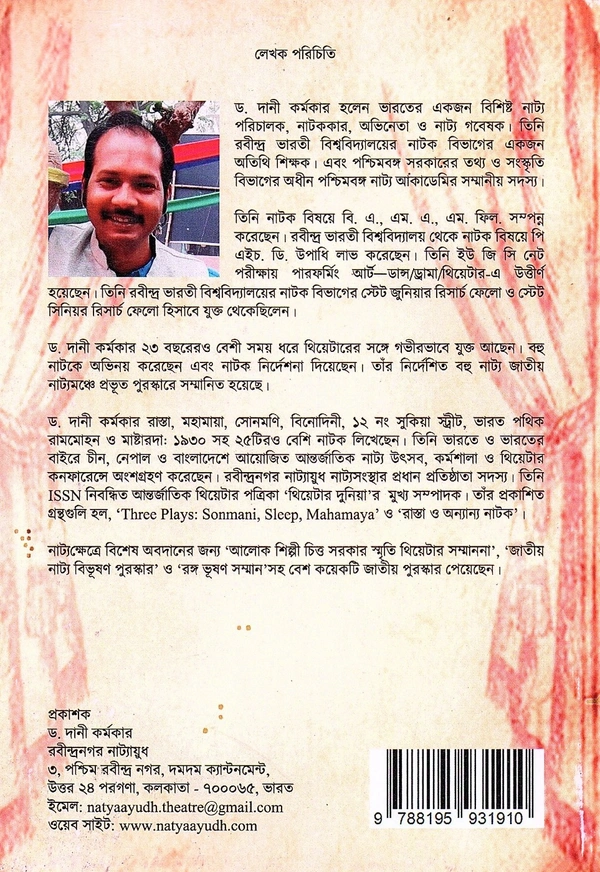 লেখক পরিচিতি
ড. দানী কর্মকার হলেন ভারতের একজন বিশিষ্ট নাট্য
পরিচালক, নাটককার, অভিনেতা ও নাট্য গবেষক। তিনি
রবীন্দ্র ভারতী বিশ্ববিদ্যালয়ের নাটক বিভাগের একজন
অতিথি শিক্ষক। এবং পশ্চিমবঙ্গ সরকারের তথ্য ও সংস্কৃতি
বিভাগের অধীন পশ্চিমবঙ্গ নাট্য আকাডেমির সম্মানীয় সদস্য।
তিনি নাটক বিষয়ে বি. এ., এম. এ., এম. ফিল. সম্পন্ন
করেছেন। রবীন্দ্র ভারতী বিশ্ববিদ্যালয় থেকে নাটক বিষয়ে পি
এইচ. ডি. উপাধি লাভ করেছেন। তিনি ইউ জি সি নেট
পরীক্ষায় পারফর্মিং আর্ট—ডান্স/ড্রামা/থিয়েটার-এ উত্তীর্ণ
হয়েছেন। তিনি রবীন্দ্র ভারতী বিশ্ববিদ্যালয়ের নাটক বিভাগের স্টেট জুনিয়ার রিসার্চ ফেলো ও স্টেট
সিনিয়র রিসার্চ ফেলো হিসাবে যুক্ত থেকেছিলেন।
ড. দানী কর্মকার ২৩ বছরেরও বেশী সময় ধরে থিয়েটারের সঙ্গে গভীরভাবে যুক্ত আছেন। বহু
নাটকে অভিনয় করেছেন এবং নাটক নির্দেশনা দিয়েছেন। তাঁর নির্দেশিত বহু নাট্য জাতীয়
নাট্যমঞ্চে প্রভূত পুরস্কারে সম্মানিত হয়েছে।
ড. দানী কর্মকার রাস্তা, মহামায়া, সোনমণি, বিনোদিনী, ১২ নং সুকিয়া স্ট্রীট, ভারত পথিক
রামমোহন ও মাষ্টারদা: ১৯৩০ সহ ২৫টিরও বেশি নাটক লিখেছেন। তিনি ভারতে ও ভারতের
বাইরে চীন, নেপাল ও বাংলাদেশে আয়োজিত আন্তর্জাতিক নাট্য উৎসব, কর্মশালা ও থিয়েটার
কনফারেন্সে অংশগ্রহণ করেছেন। রবীন্দ্রনগর নাট্যায়ুধ নাট্যসংস্থার প্রধান প্রতিষ্ঠাতা সদস্য। তিনি
ISSN নিবন্ধিত আন্তর্জাতিক থিয়েটার পত্রিকা ‘থিয়েটার দুনিয়া’র মুখ্য সম্পাদক। তাঁর প্রকাশিত
গ্রন্থগুলি হল, ‘Three Plays: Sonmani, Sleep, Mahamaya’ ও ‘রাস্তা ও অন্যান্য নাটক’।
নাট্যক্ষেত্রে বিশেষ অবদানের জন্য ‘আলোক শিল্পী চিত্ত সরকার স্মৃতি থিয়েটার সম্মাননা’, ‘জাতীয়
নাট্য বিভূষণ পুরস্কার’ ও ‘রঙ্গ ভূষণ সম্মান’সহ বেশ কয়েকটি জাতীয় পুরস্কার পেয়েছেন।
প্রকাশক
ড. দানী কর্মকার
রবীন্দ্রনগর নাট্যায়ুধ
৩, পশ্চিম রবীন্দ্র নগর, দমদম ক্যান্টনমেন্ট,
উত্তর ২৪ পরগণা, কলকাতা - ৭০০০৬৫, ভারত
ইমেল: natyaayudh.theatre@gmail.com
ওয়েব সাইট: www.natyaayudh.com
9 788195 931910